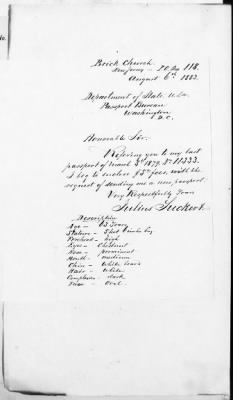 Brick Church
New Jersey - P.O. Box 118.
August 6th 1883.
Department of State U.S.
Passport Bureau
Washington
D.C.
Honorable Sir.
Refering you to my last
passport of March 3d 1879, No 11333.
I beg to enclose $5 fees, with the
request of sending me a new passport.
Very Respectfully Yours
Julius
Description
Age - 63 Years
Stature - 5 feet
Forehead - high
Eyes - Chestnut
Nose - prominent
Mouth - medium
Chin - White beard
Hair - White
Complexion - dark
Face - Oval